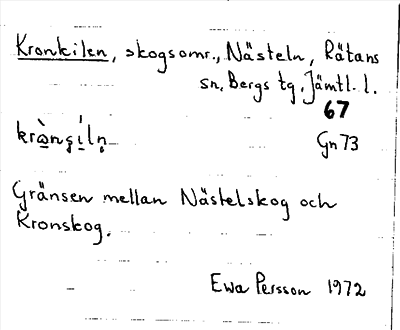 Kronkilen, skogsomr., Nästeln, Rätans
sn, Bergs tg, Jämtl. l.
67
Gn 73
Gränsen mellan Nästelskog och
Kronskog.
Ewa Persson 1972